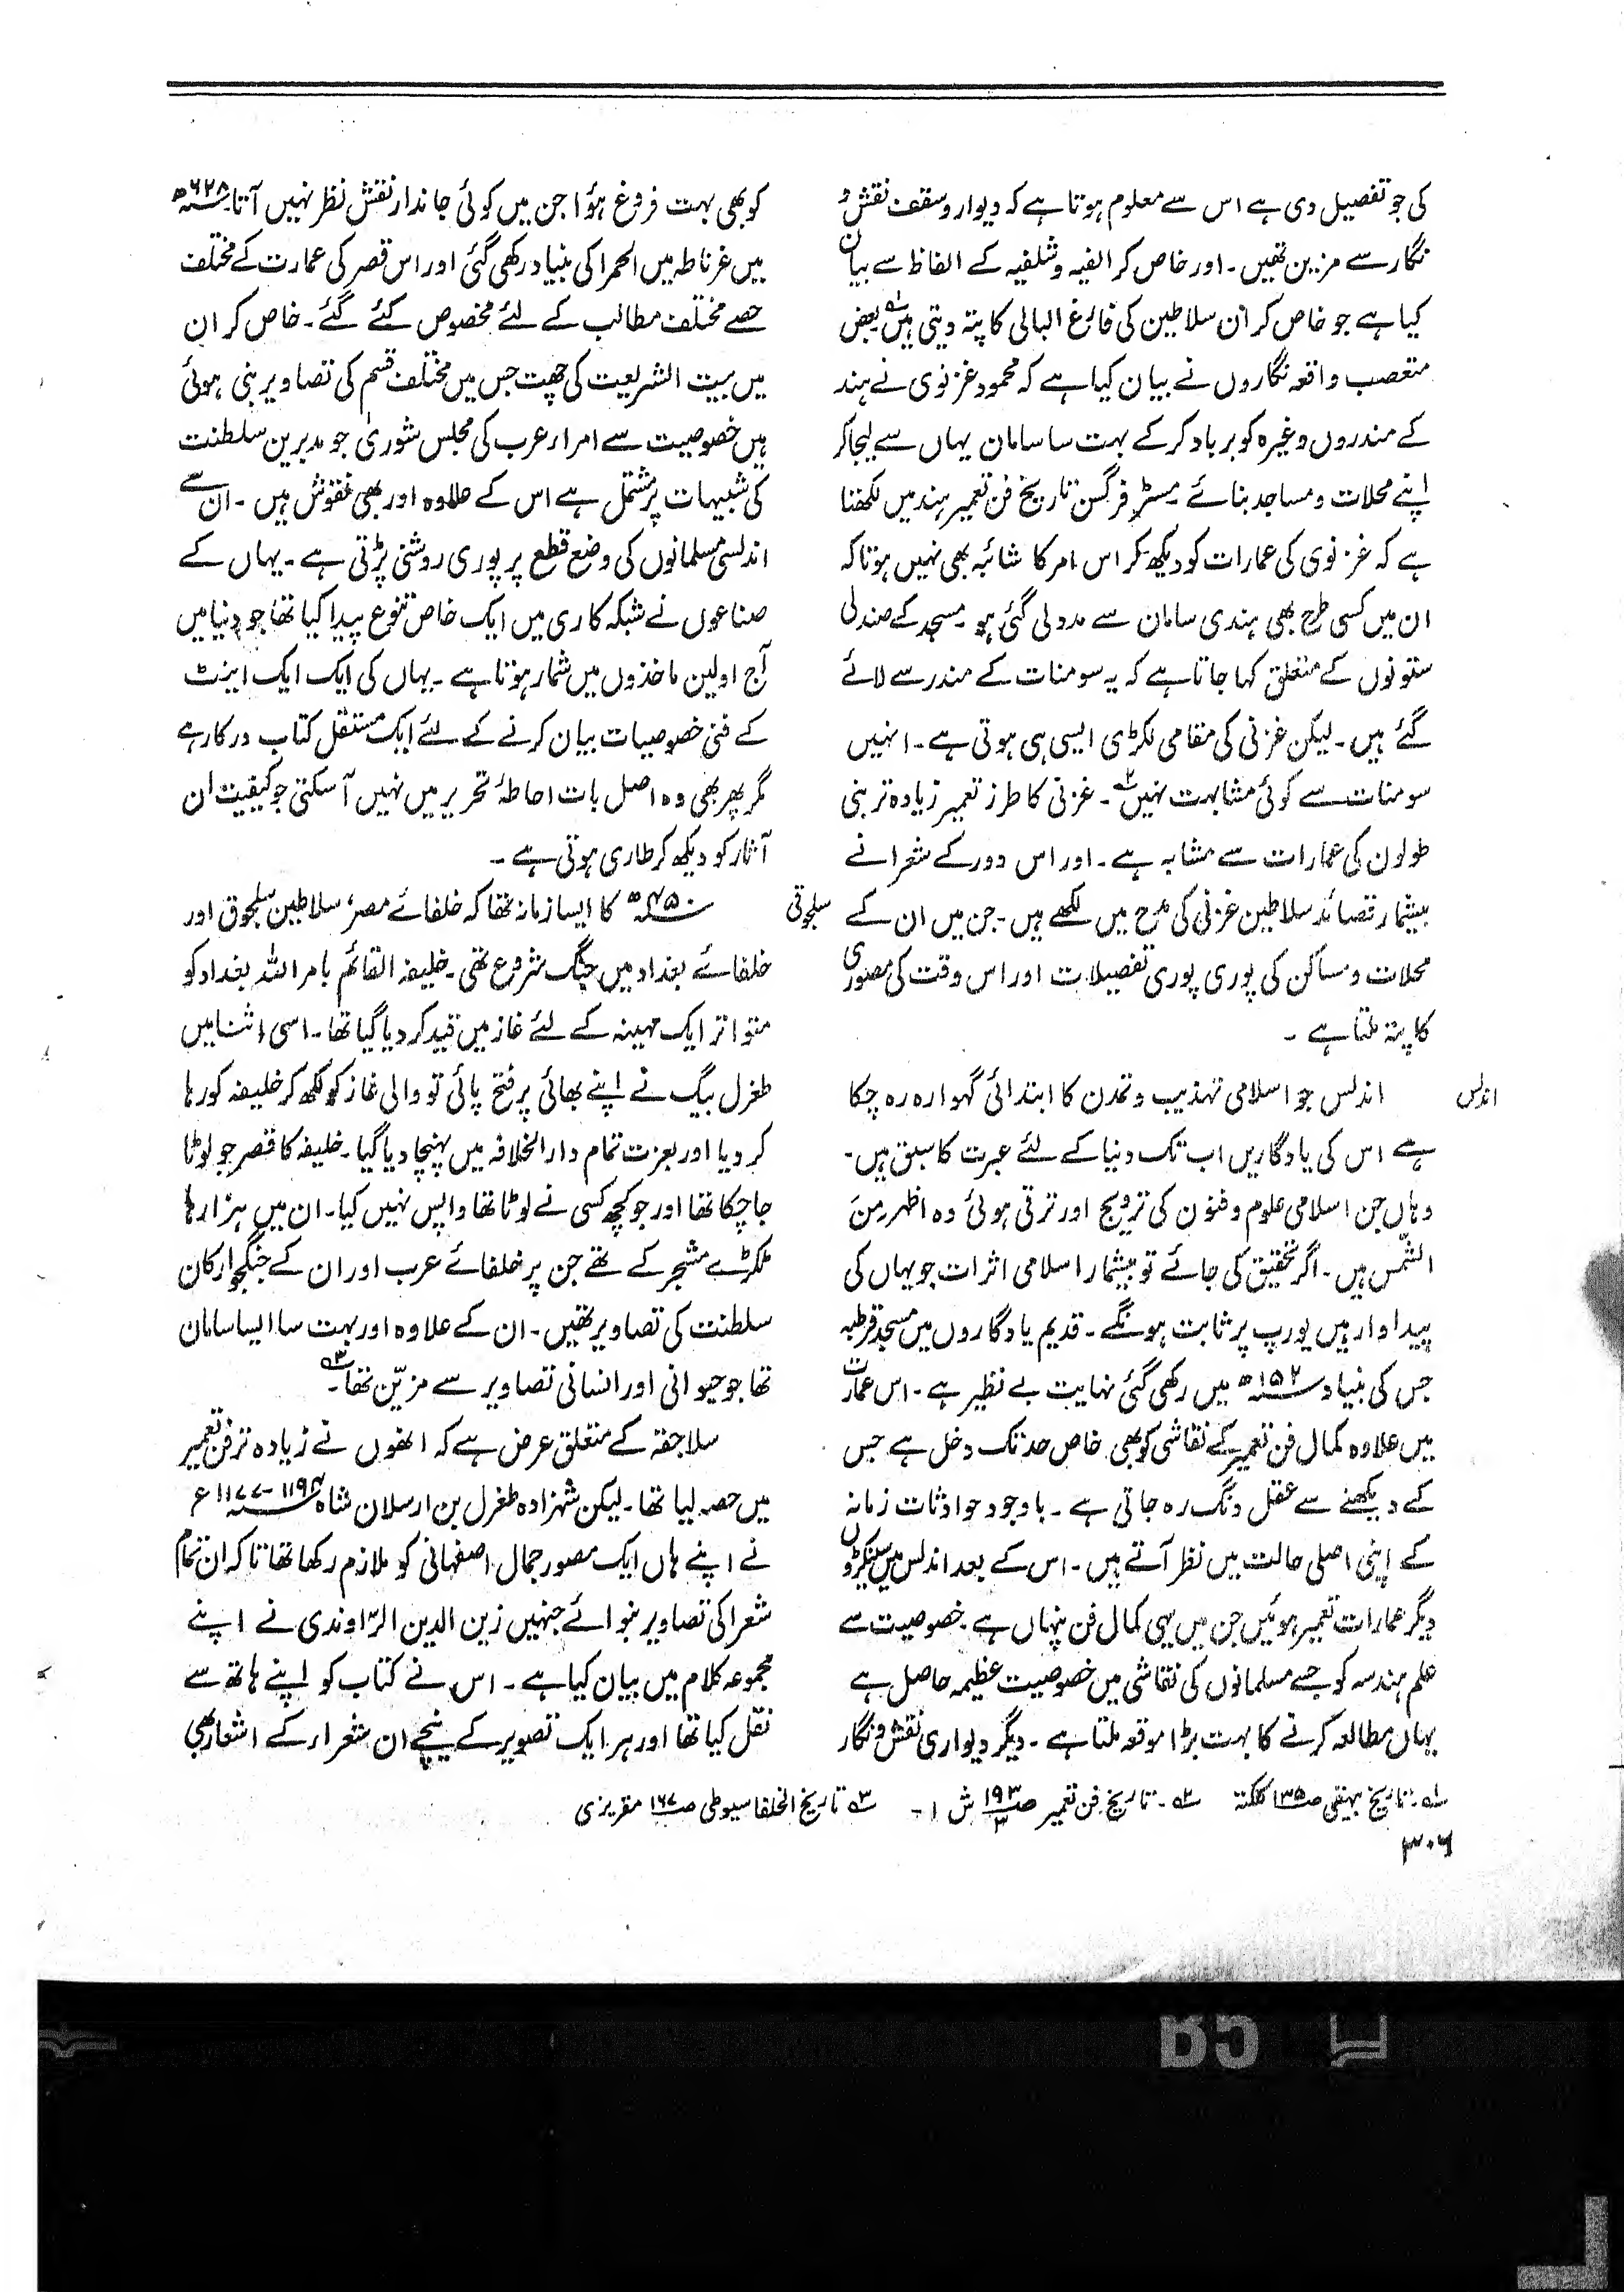 کی جو تفصیل دی ہے اس سے معلوم ہوتا ہے کہ دیوار و سقف نقش و
نگار سے مزین تھیں۔ اور خاص کر الفیہ و شلفیہ کے الفاظ سے بیان
کیا ہے جو خاص کر ان سلاطین کی فارغ البالی کا پتہ دیتی ہیں۱؎ بعض
متعصب واقعہ نگاروں نے بیان کیا ہے کہ محمود غزنوی نے ہند
کے مندروں وغیرہ کو برباد کر کے بہت سا سامان یہاں سے لیجا کر
اپنے محلات و مساجد بنائے مسٹر فرگسن تاریخ فن تعمیر ہند میں لکھتا
ہے کہ غزنوی کی عمارات کو دیکھ کر اس امر کا شائبہ بھی نہیں ہوتا کہ
ان میں کسی طرح بھی ہندی سامان سے مدد لی گئی ہو۔ مسجد کے صندلی
ستونوں کے متعلق کہا جاتا ہے کہ یہ سومنات کے مندر سے لائے
گئے ہیں۔ لیکن غزنی کی مقامی لکڑی ایسی ہی ہوتی ہے۔ انہیں
سومنات سے کوئی مشابہت نہیں۲؎۔ غزنی کا طرز تعمیر زیادہ تر بنی
طولون کی عمارات سے مشابہ ہے۔ اور اس دور کے شعرا نے
بیشمار قصائد سلاطین غزنی کی مدح میں لکھے ہیں۔ جن میں ان کے
محلات و مساکن کی پوری پوری تفصیلات اور اس وقت کی مصوری
کا پتہ ملتا ہے۔
اندلس
اندلس جو اسلامی تہذیب و تمدن کا ابتدائی گہوارہ رہ چکا
ہے اس کی یادگاریں اب تک دنیا کے لئے عبرت کا سبق ہیں۔
وہاں جن اسلامی علوم و فنون کی ترویج اور ترقی ہوئی وہ اظہر مِنَ
الشّمس ہیں۔ اگر تحقیق کی جائے تو بیشمار اسلامی اثرات جو یہاں کی
پیداوار ہیں یورپ پر ثابت ہونگے۔ قدیم یادگاروں میں مسجد قرطبہ
جس کی بنیاد ۱۵۲ھ میں رکھی گئی نہایت بے نظیر ہے۔ اس عمارت
میں علاوہ کمال فن تعمیر کے نقاشی کو بھی خاص حد تک دخل ہے جس
کے دیکھنے سے عقل دنگ رہ جاتی ہے۔ باوجود حوادثات زمانہ
کے اپنی اصلی حالت میں نظر آتے ہیں۔ اس کے بعد اندلس میں سینکڑوں
دیگر عمارات تعمیر ہوئیں جن میں یہی کمال فن پنہاں ہے۔ خصوصیت سے
علم ہندسہ کو جسے مسلمانوں کی نقاشی میں خصوصیت عظیمہ حاصل ہے
یہاں مطالعہ کرنے کا بہت بڑا موقعہ ملتا ہے۔ دیگر دیواری نقش و نگار
کو بھی بہت فروغ ہؤا جن میں کوئی جاندار نقش نظر نہیں آتا۔ ۶۲۸ھ
میں غرناطہ میں الحمرا کی بنیاد رکھی گئی اور اس قصر کی عمارت کے مختلف
حصے مختلف مطالب کے لئے مخصوص کئے گئے۔ خاص کر ان
میں بیت الشریعت کی چھت جس میں مختلف قسم کی تصاویر بنی ہوئی
ہیں خصوصیت سے امراء عرب کی مجلس شوریٰ جو مدبرین سلطنت
کی شبیہات پر مشتمل ہے اس کے علاوہ اور بھی نقوش ہیں۔ ان سے
اندلسی مسلمانوں کی وضع قطع پر پوری روشنی پڑتی ہے۔ یہاں کے
صناعوں نے شبکہ کاری میں ایک خاص تنوع پیدا کیا تھا جو دنیا میں
آج اولین ماخذوں میں شمار ہوتا ہے۔ یہاں کی ایک ایک اینٹ
کے فنی خصوصیات بیان کرنے کے لئے ایک مستقل کتاب درکار ہے
مگر پھر بھی وہ اصل بات احاطۂ تحریر میں نہیں آ سکتی جو کیفیت ان
آثار کو دیکھ کر طاری ہوتی ہے۔
سلجوقی
۴۵۰ھ کا ایسا زمانہ تھا کہ خلفائے مصر، سلاطین سلجوق اور
خلفائے بغداد میں جنگ شروع تھی۔ خلیفہ القائم بامر اللہ بغداد کو
متواتر ایک مہینہ کے لئے غاز میں قید کر دیا گیا تھا۔ اسی اثنا میں
طغرل بیگ نے اپنے بھائی پر فتح پائی تو والی غاز کو لکھ کر خلیفہ کو رہا
کر دیا اور بعزت تمام دارالخلافہ میں پہنچا دیا گیا۔ خلیفہ کا قصر جو لوٹا
جا چکا تھا اور جو کچھ کسی نے لوٹا تھا واپس نہیں کیا۔ ان میں ہزارہا
ٹکڑے مشجر کے تھے جن پر خلفائے عرب اور ان کے جنگجو ارکان
سلطنت کی تصاویر تھیں۔ ان کے علاوہ اور بہت سا ایسا سامان
تھا جو حیوانی اور انسانی تصاویر سے مزیّن تھا۳؎۔
سلاجقہ کے متعلق عرض ہے کہ انھوں نے زیادہ تر فن تعمیر
میں حصہ لیا تھا۔ لیکن شہزادہ طغرل بن ارسلان شاہ ۱۱۷۷-۱۱۹۴ء
نے اپنے ہاں ایک مصور جمال اصفہانی کو ملازم رکھا تھا تاکہ ان تمام
شعرا کی تصاویر بنوائے جنہیں زین الدین الرّاوندی نے اپنے
مجموعہ کلام میں بیان کیا ہے۔ اس نے کتاب کو اپنے ہاتھ سے
نقل کیا تھا اور ہر ایک تصویر کے نیچے ان شعراء کے اشعار بھی
۱؎۔ تاریخ بیہقی صـ۱۳۵ کلکتہ ۲؎۔ تاریخ فن تعمیر صـ۱۹۳/۳ ش ۱- ۳؎ تاریخ الخلفا سیوطی صـ۱۶۷ مقریزی
۳۰۶